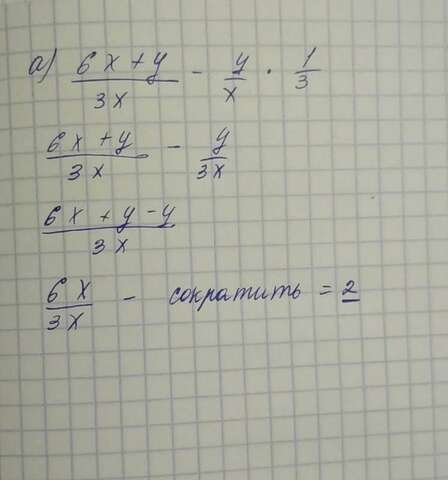 а) (6x+y)/(3x) - y/x · 1/3
(6x+y)/(3x) - y/(3x)
(6x+y-y)/(3x)
6x/3x - сократить = 2